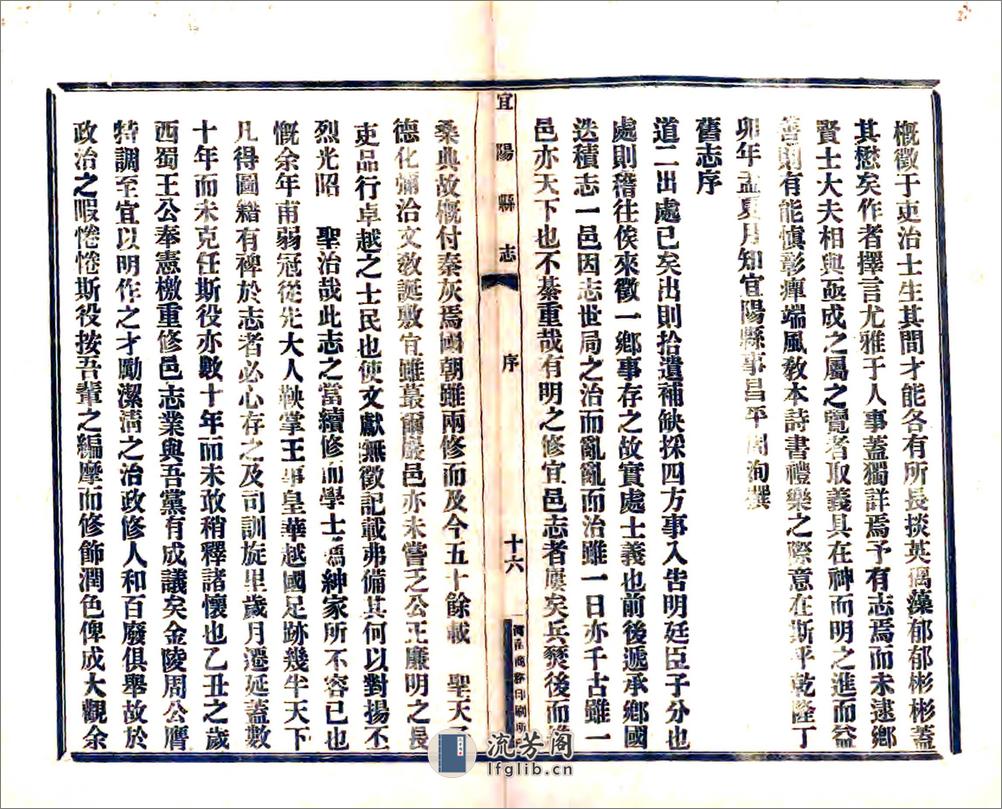 概徵于吏治士生其間才能各有所長掞英摛藻郁郁彬彬蓋
其懋矣作者擇言尤雅于人事蓋獨詳焉予有志焉而未逮鄉
賢士大夫相與亟成之屬之覽者取義具在神而明之進而益
善則有能慎彰癉端風敎本詩書禮樂之際意在斯乎乾隆丁
卯年孟夏月知宜陽縣事昌平周洵撰
舊志序
道二出處已矣出則拾遺補缺採四方事入告明廷臣子分也
處則稽往俟來徵一鄉事存之故實處士義也前後遞承鄉國
迭積志一邑因志世局之治而亂亂而治雖一日亦千古雖一
邑亦天下也不綦重哉有明之修宜邑志者屢矣兵燹後而
宜陽縣志
序
十六
河南商務印刷所
桑典故槪付秦灰焉國朝雖兩修而及今五十餘載 聖天子
德化彌洽文敎誕敷宜雖蕞爾巖邑亦未嘗乏公正廉明之長
吏品行卓越之士民也使文獻無徵記載弗備其何以對揚丕
烈光昭 聖治哉此志之當續修而學士縉紳家所不容已也
慨余年甫弱冠從先大人鞅掌王事皇華越國足跡幾半天下
凡得圖籍有裨於志者必心存之及司訓旋里歲月遷延蓋數
十年而未克任斯役亦數十年而未敢稍釋諸懷也乙丑之歲
西蜀王公奉憲檄重修邑志業與吾黨有成議矣金陵周公膺
特調至宜以明作之才勵潔淸之治政修人和百廢俱舉故於
政治之暇惓惓斯役按吾輩之編摩而修飾潤色俾成大觀余
流芳閣
lfglib.cn